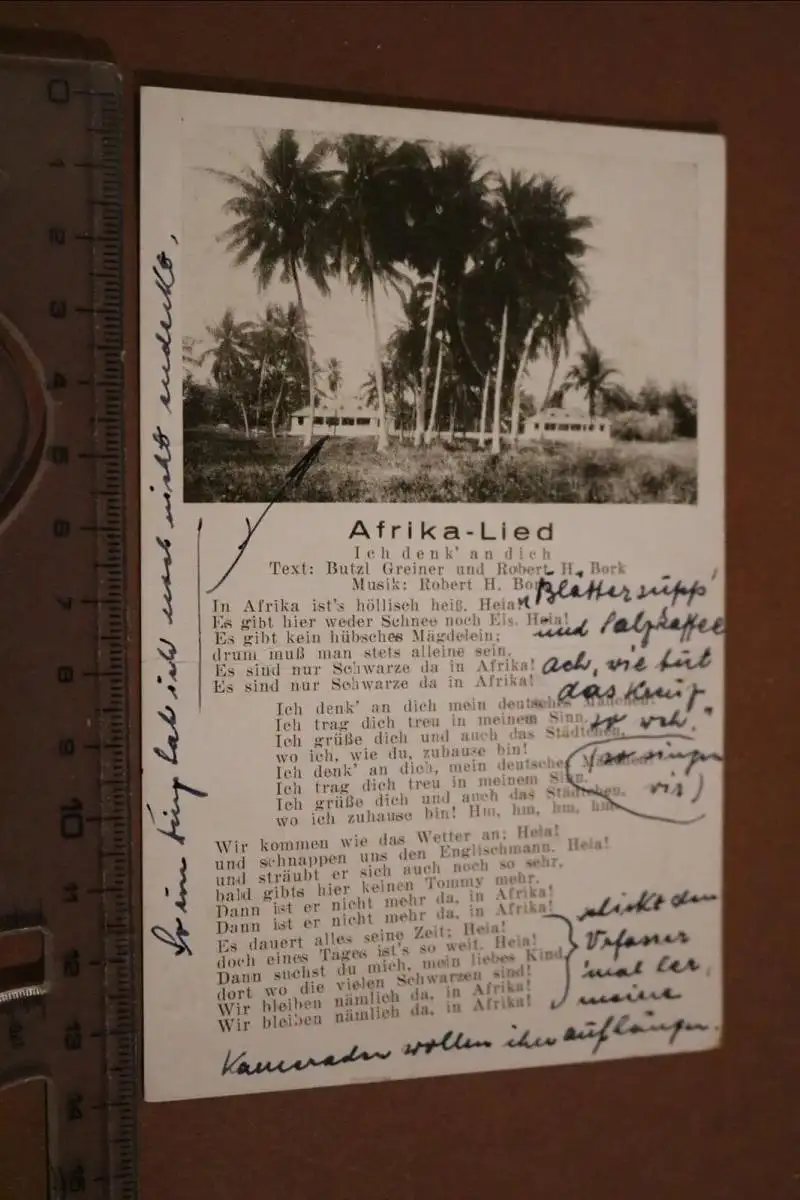 Afrika-Lied
Ich denk' an dich
Text: Butzl Greiner und Robert H. Bork
Musik: Robert H. Bork
In Afrika ist's höllisch heiß. Heia!
Es gibt hier weder Schnee noch Eis. Heia!
Es gibt kein hübsches Mägdelein;
drum muß man stets alleine sein.
Es sind nur Schwarze da in Afrika!
Es sind nur Schwarze da in Afrika!
Ich denk' an dich mein deutsches Mädchen.
Ich trag dich treu in meinem Sinn.
Ich grüße dich und auch das Städtchen,
wo ich, wie du, zuhause bin!
Ich denk' an dich, mein deutsches Mädchen.
Ich trag dich treu in meinem Sinn.
Ich grüße dich und auch das Städtchen.
wo ich zuhause bin! Hm, hm, hm, hm.
Wir kommen wie das Wetter an; Heia!
und schnappen uns den Englischmann. Heia!
und sträubt er sich auch noch so sehr,
bald gibts hier keinen Tommy mehr.
Dann ist er nicht mehr da, in Afrika!
Dann ist er nicht mehr da, in Afrika!
Es dauert alles seine Zeit; Heia!
doch eines Tages ist's so weit. Heia!
Dann suchst du mich, mein liebes Kind,
dort wo die vielen Schwarzen sind!
Wir bleiben nämlich da, in Afrika!
Wir bleiben nämlich da, in Afrika!
"Blättersupp'
und Salzkaffee
ach, wie tut
das Kreuz
so weh."
(so singen
wir)
schickt den
Verfasser
'mal her,
meine
Kameraden wollen ihn aufhängen.
So ein Ding hab ich noch nicht entdeckt,
0
1
2
3
4
5
6
7
8
9
10
11
12
13
14
15